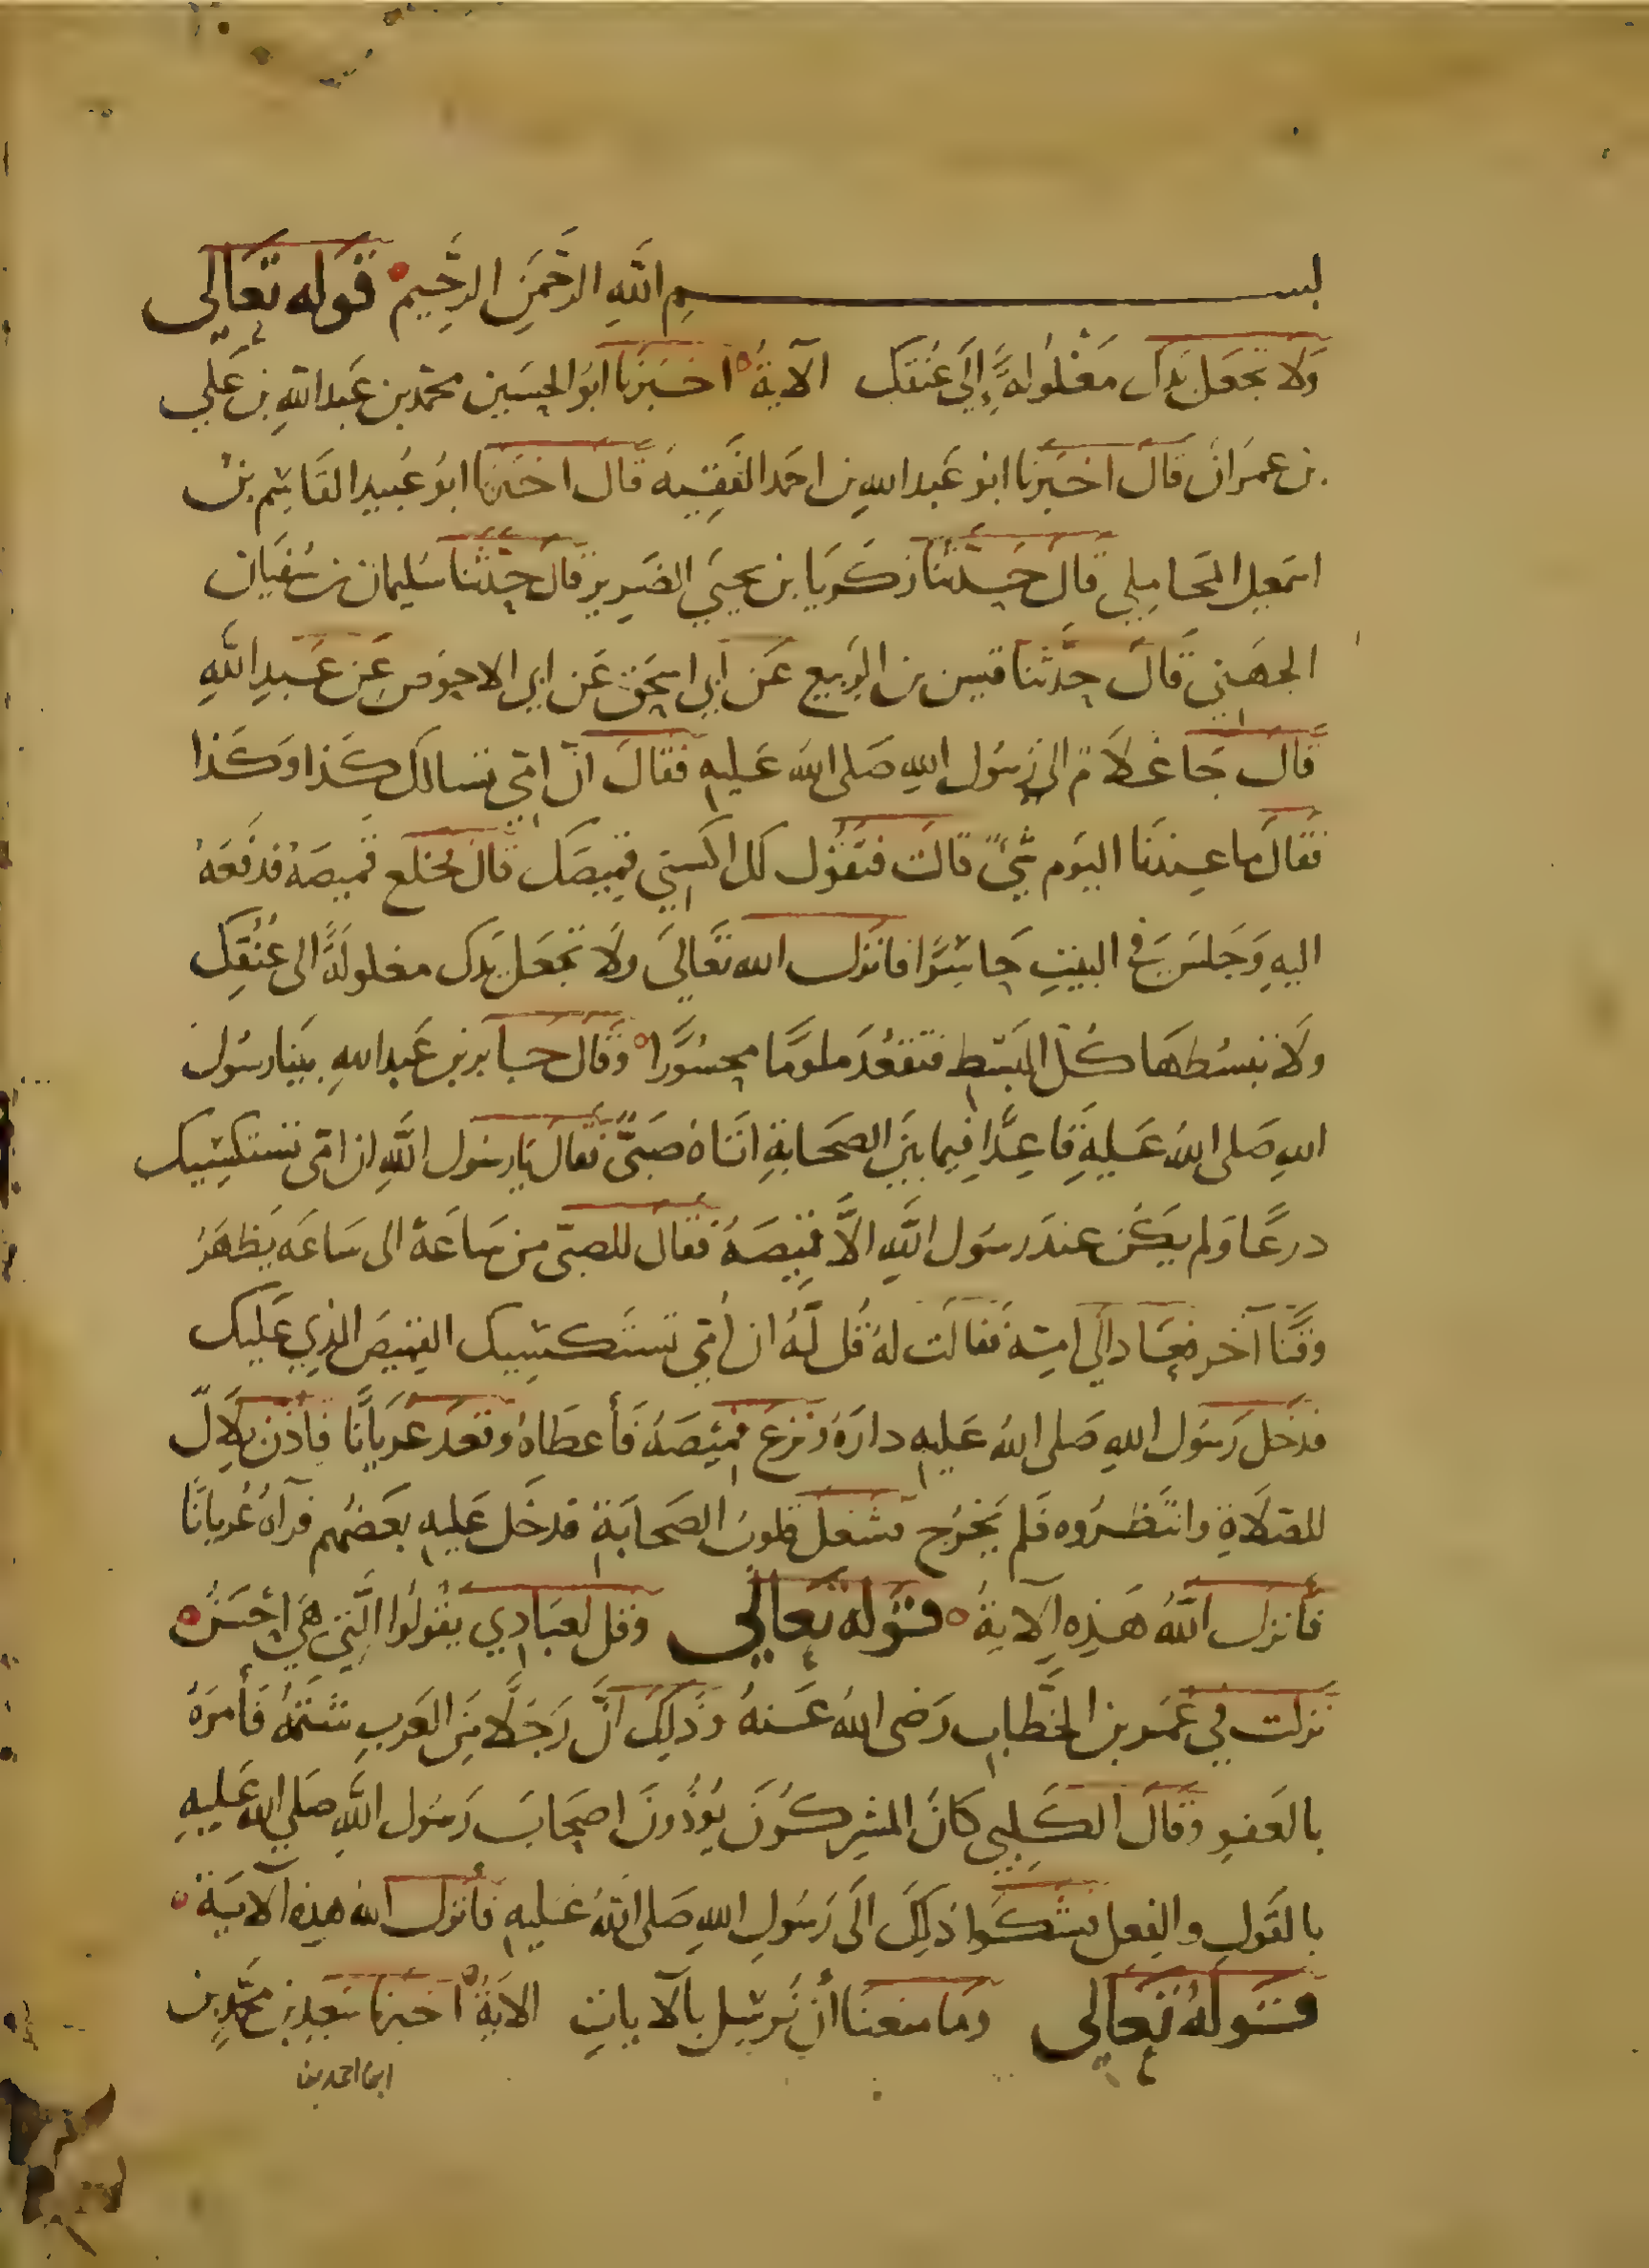 بسم الله الرحمن الرحيم قوله تعالى
ولا تجعل يدك مغلولة إلى عنقك الآية اخبرنا ابو الحسين محمد بن عبد الله بن علي
بن عمران قال اخبرنا ابو عبد الله بن احمد الفقيه قال اخبرنا ابو عبيد القاسم بن
اسمعيل المحاملي قال حدثنا زكريا بن يحيى الضرير قال حدثنا سليمان بن سفيان
الجهني قال حدثنا قيس بن الربيع عن ابي اسحق عن ابي الاحوص عن عبد الله
قال جا غلام الى رسول الله صلى الله عليه فقال ان امي تسالك كذا وكذا
فقال ما عندنا اليوم شيء قالت فتقول لك اكسني قميصك قال فخلع قميصه فدفعه
اليه وجلس في البيت حاسرا فانزل الله تعالى ولا تجعل يدك مغلولة الى عنقك
ولا تبسطها كل البسط فتقعد ملوما محسورا وقال جابر بن عبد الله بينا رسول
الله صلى الله عليه قاعدا فيما بين الصحابة اتاه صبي فقال يا رسول الله ان امي تستكسيك
درعا ولم يكن عند رسول الله الا قميصه فقال للصبي من ساعة الى ساعه يظهر
وقتا آخر فعاد الى امه فقالت له قل له ان امي تستكسيك القميص الذي عليك
فدخل رسول الله صلى الله عليه داره ونزع قميصه فأعطاه وقعد عريانا فأذن بلال
للصلاة وانتظروه فلم يخرج فشغل قلوب الصحابة فدخل عليه بعضهم فرآه عريانا
فأنزل الله هذه الآية قوله تعالى وقل لعبادي يقولوا التي هي احسن
نزلت في عمر بن الخطاب رضى الله عنه وذلك ان رجلا من العرب شتمه فأمره
بالعفو وقال الكلبي كان المشركون يؤذون اصحاب رسول الله صلى الله عليه
بالقول والفعل فشكوا ذلك الى رسول الله صلى الله عليه فأنزل الله هذه الآية
قوله تعالى وما منعنا أن نرسل بالآيات الآية اخبرنا سعيد بن محمد بن
احمد بن